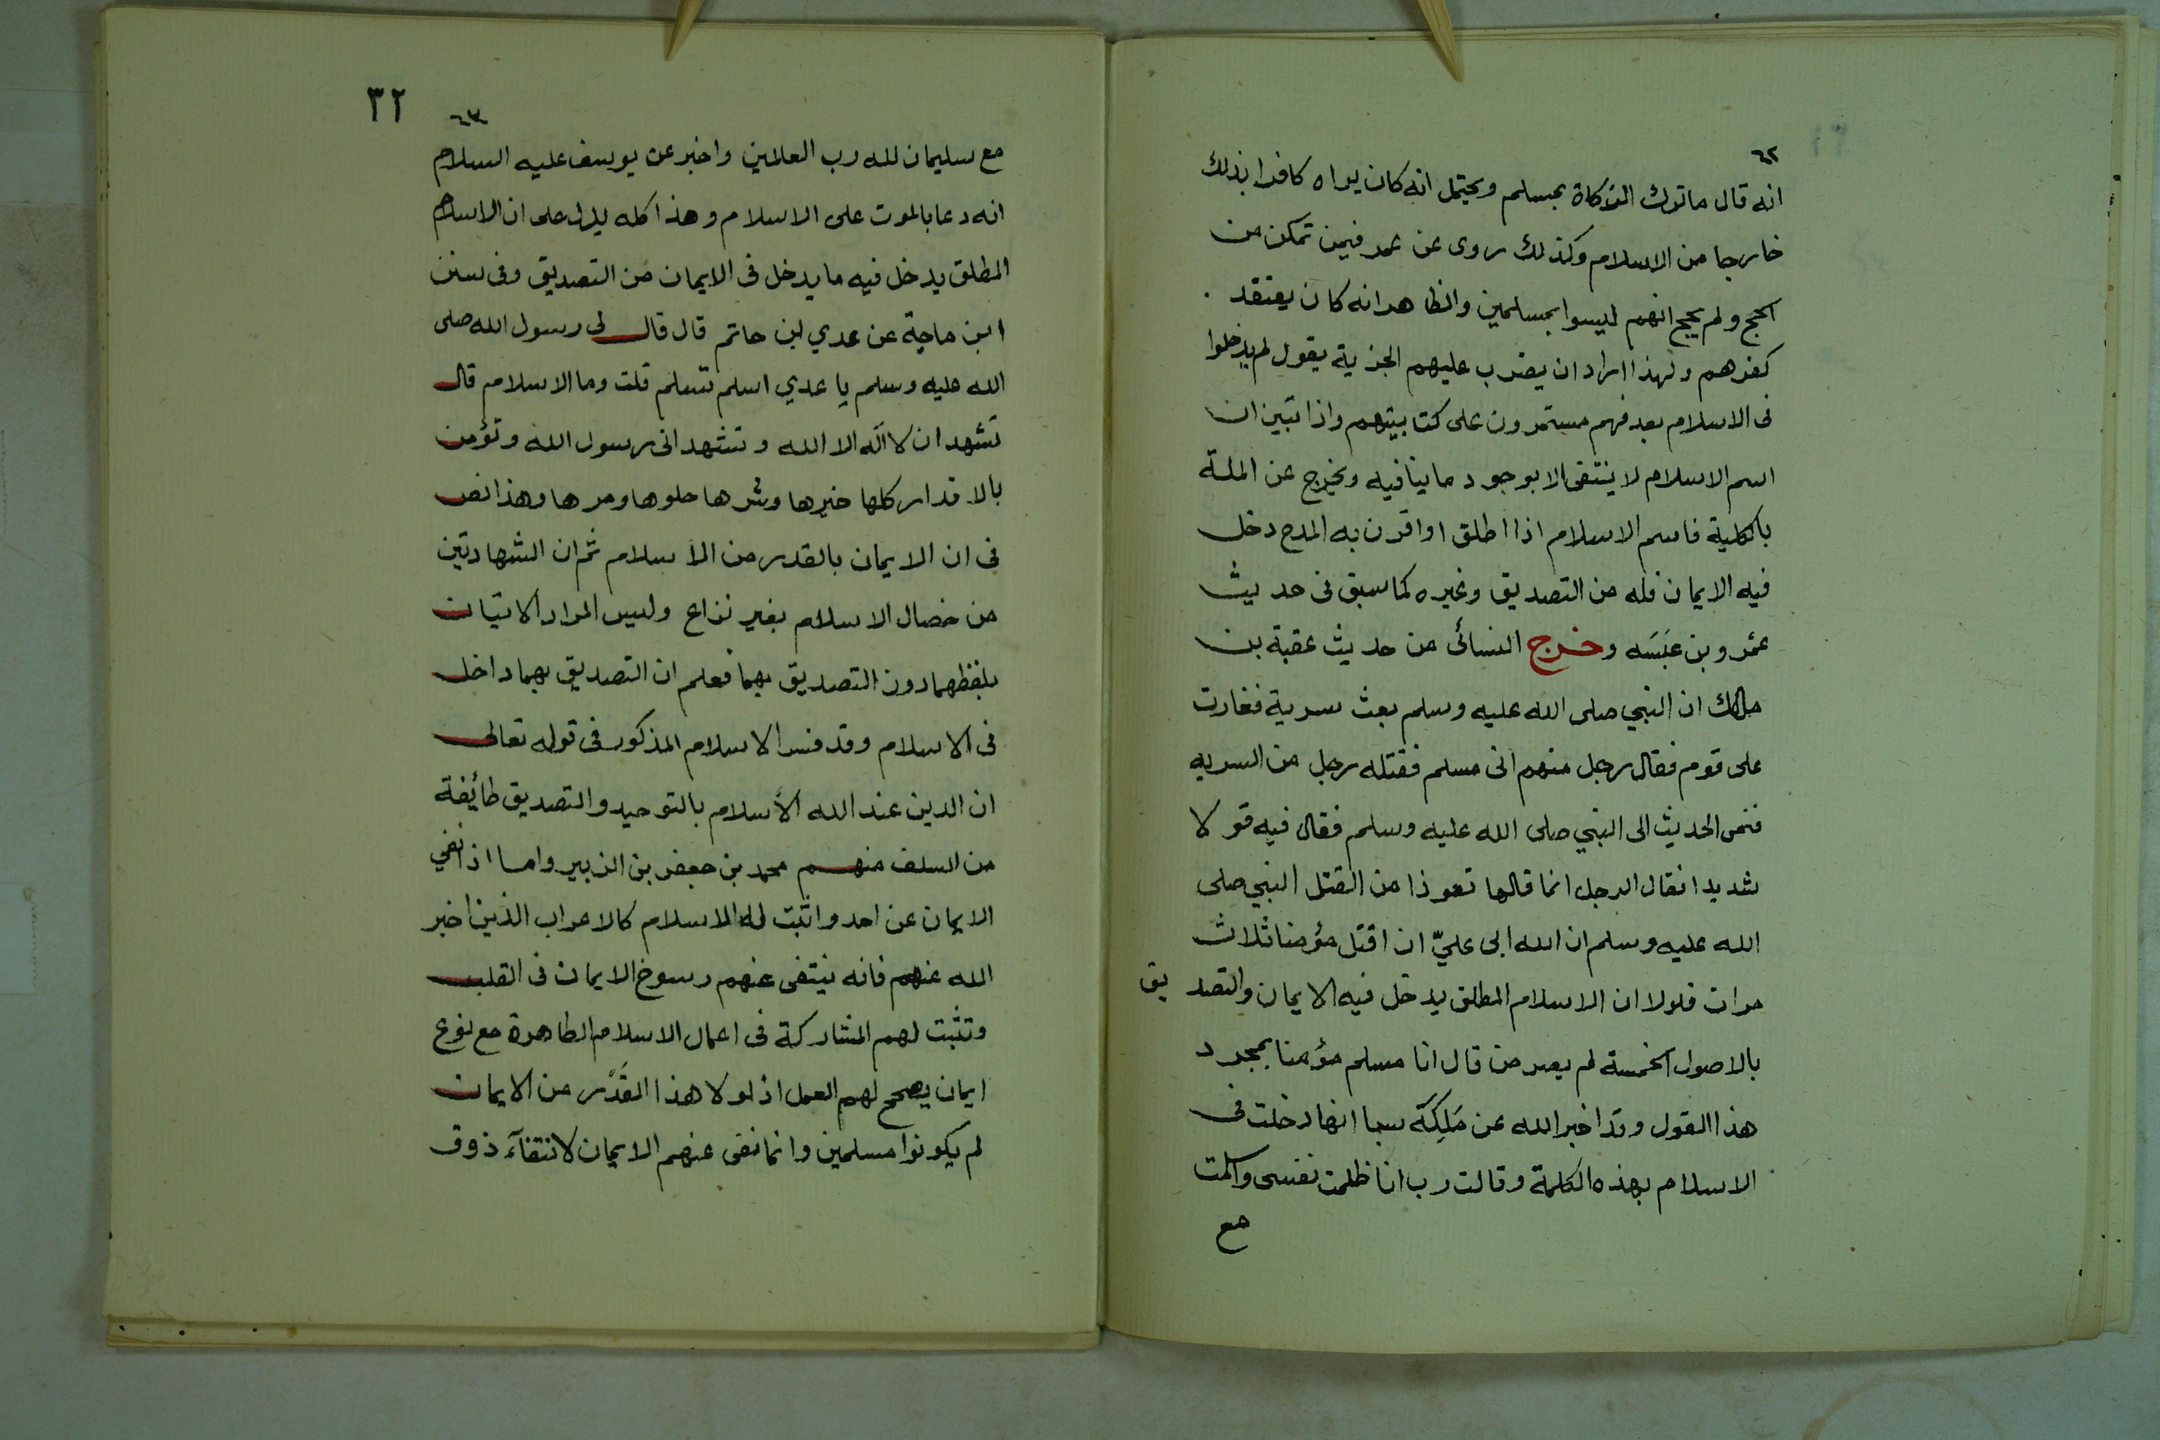 ٦٢
انه قال ماتوك الزكاة بمسلم ويحتمل انه كان يراه كافرا بذلك
خارجا من الاسلام وكذلك روى عن عمر فيمن تمكن من
الحج ولم يحج انهم ليسوا بمسلمين والظاهر انه كان يعتقد
كفرهم ولهذا اراد ان يضرب عليهم الجزية يقول لم يدخلوا
فى الاسلام بعد فهم مستمرون على كتابيتهم واذا تبين ان
اسم الاسلام لا ينتفى الا بوجود ما ينافيه ويخرج عن الملة
بالكلية فاسم الاسلام اذا اطلق او اقرن به المدح دخل
فيه الايمان كله من التصديق وغيره كما سبق فى حديث
عمرو بن عَبَسَه وخرج النسائى من حديث عقبة بن
مالك ان النبي صلى الله عليه وسلم بعث سرية فغارت
على قوم فقال رجل منهم انى مسلم فقتله رجل من السريه
فنمى الحديث الى النبي صلى الله عليه وسلم فقال فيه قولا
شديدا فقال الرجل انما قالها تعوذا من القتل النبي صلى
الله عليه وسلم ان الله ابى عليّ ان اقتل مؤمنا ثلاث
مرات فلولا ان الاسلام المطلق يدخل فيه الايمان والتصديق
بالاصول الخمسة لم يصر من قال انا مسلم مؤمنا بمجرد
هذا القول وقد اخبر الله عن مَلِكَة سبا انها دخلت فى
الاسلام بهذه الكلمة وقالت رب انا ظلمت نفسى واسلمت
مع
٣٢
٦٣
مع سليمان لله رب العالمين واخبر عن يوسف عليه السلام
انه دعا بالموت على الاسلام وهذا كله يدل على ان الاسلام
المطلق يدخل فيه ما يدخل فى الايمان من التصديق وفى سنن
ابن ماجة عن عدي ابن حاتم قال قال لى رسول الله صلى
الله عليه وسلم يا عدي اسلم تسلم قلت وما الاسلام قال
تشهد ان لا اله الا الله وتشهد انى رسول الله وتؤمن
بالاقدار كلها خيرها وشرها حلوها ومرها وهذا نص
فى ان الايمان بالقدر من الاسلام ثم ان الشهادتين
من خصال الاسلام بغير نزاع وليس المراد الاتيان
بلفظهما دون التصديق بهما فعلم ان التصديق بهما داخل
فى الاسلام وقد فسر الاسلام المذكور فى قوله تعالى
ان الدين عند الله الأسلام بالتوحيد والتصديق طائفة
من السلف منهم محمد بن جعفر بن الزبير واما اذا نفي
الايمان عن احد واثبت له الاسلام كالاعراب الذين اخبر
الله عنهم فانه ينتفى عنهم رسوخ الايمان فى القلب
وتثبت لهم المشاركة فى اعمال الاسلام الظاهرة مع نوع
ايمان يصحح لهم العمل اذ لولا هذا القَدْر من الايمان
لم يكونوا مسلمين وانما نفى عنهم الايمان لانتفآء ذوق